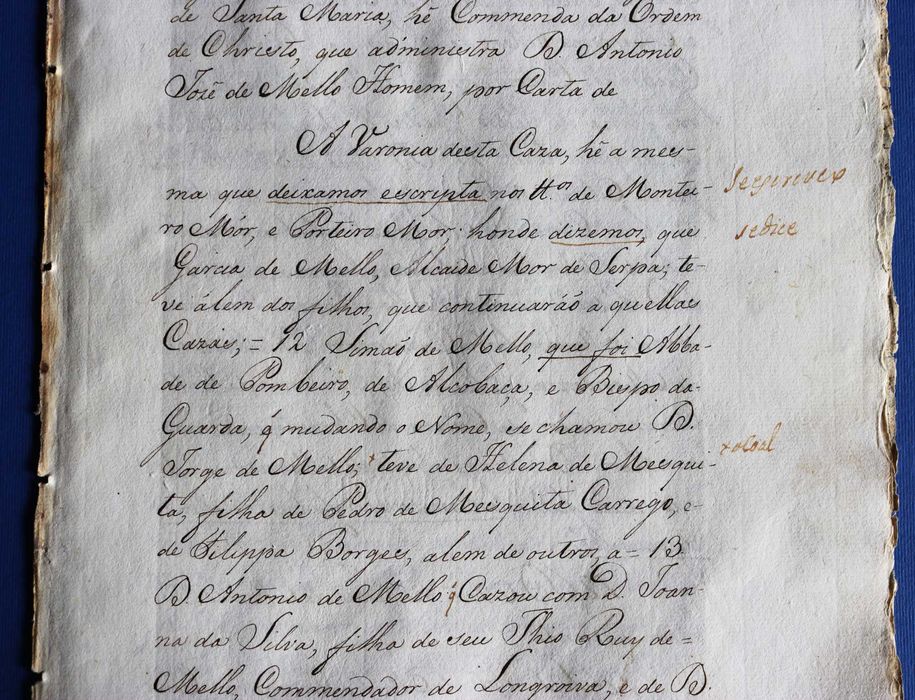 de Santa Maria, hé Commenda da Ordem
de Christo, que administra D. Antonio
José de Mello Homem, por Carta de
A Varonia desta Caza, hé a mes-
ma que deixamos escripta nos tt.ºs de Montei-
ro Mór, e Porteiro Mór honde dizemos, que
Garcia de Mello, Alcaide Mor de Serpa, te-
ve álem dos filhos, que continuaráõ aquellas
Cazas; = 12 Simaõ de Mello, que foi Abba-
de de Pombeiro, de Alcobaça, e Bispo da
Guarda, q̃ mudando o Nome, se chamou D.
Jorge de Mello; + teve de Helena de Mesqui-
ta, filha de Pedro de Mesquita Carrego, e
de Filippa Borges, alem de outros, a = 13
D. Antonio de Mello q̃ Cazou com D. Joan-
na da Silva, filha de seu Thio Ruy de =
Mello, Commendador de Longroiva, e de D.
se escreveo
se dice
+ o coal